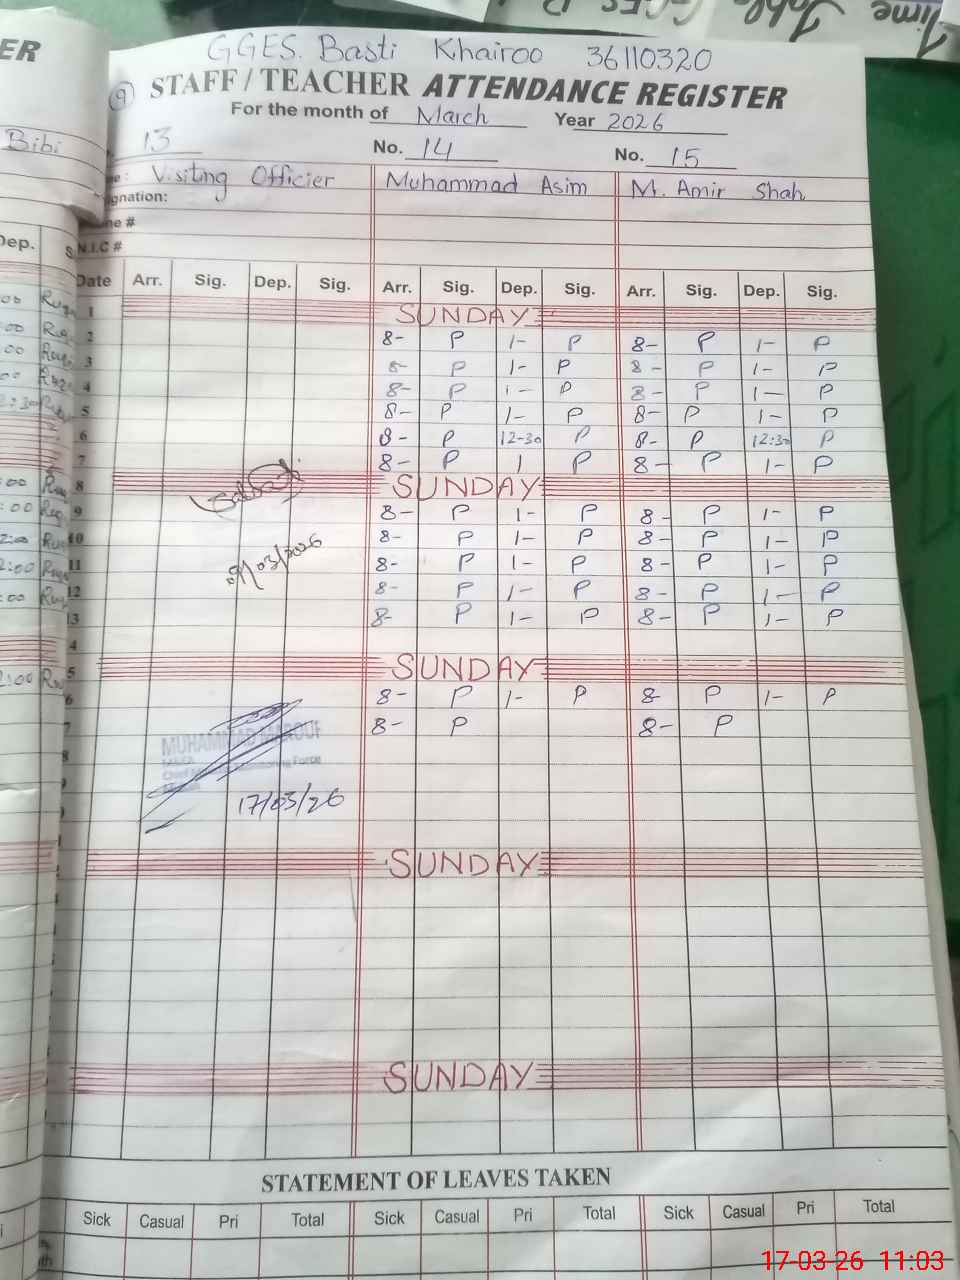 Time Table GGES B
ER
GGES. Basti Khairoo 36110320
9 STAFF / TEACHER ATTENDANCE REGISTER
For the month of March Year 2026
Bibi
13 No. 14 No. 15
Visiting Officier Muhammad Asim M. Amir Shah
gnation:
ne #
N.I.C #
Dep. S
Date Arr. Sig. Dep. Sig. Arr. Sig. Dep. Sig. Arr. Sig. Dep. Sig.
1 SUNDAY
2 8- P 1- P 8- P 1- P
3 8- P 1- P 8- P 1- P
4 8- P 1- P 8- P 1- P
5 8- P 1- P 8- P 1- P
6 8- P 12-30 P 8- P 12:30 P
7 8- P 1 P 8- P 1- P
8 SUNDAY
9 8- P 1- P 8- P 1- P
10 8- P 1- P 8- P 1- P
11 8- P 1- P 8- P 1- P
12 8- P 1- P 8- P 1- P
13 8- P 1- P 8- P 1- P
09/03/2026
4
5 SUNDAY
6 8- P 1- P 8- P 1- P
7 8- P 8- P
8
MUHAMMAD MAROUF
17/03/26
SUNDAY
SUNDAY
STATEMENT OF LEAVES TAKEN
Sick Casual Pri Total Sick Casual Pri Total Sick Casual Pri Total
17-03-26 11:03